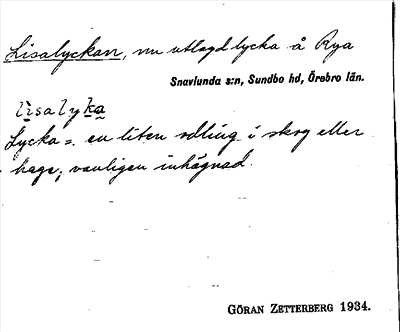 Lisalyckan, nu utlagd lycka å Rya
Snavlunda s:n, Sundbo hd, Örebro län.
lisalyka
Lycka = en liten odling i skog eller
hage; vanligen inhägnad.
GÖRAN ZETTERBERG 1934.